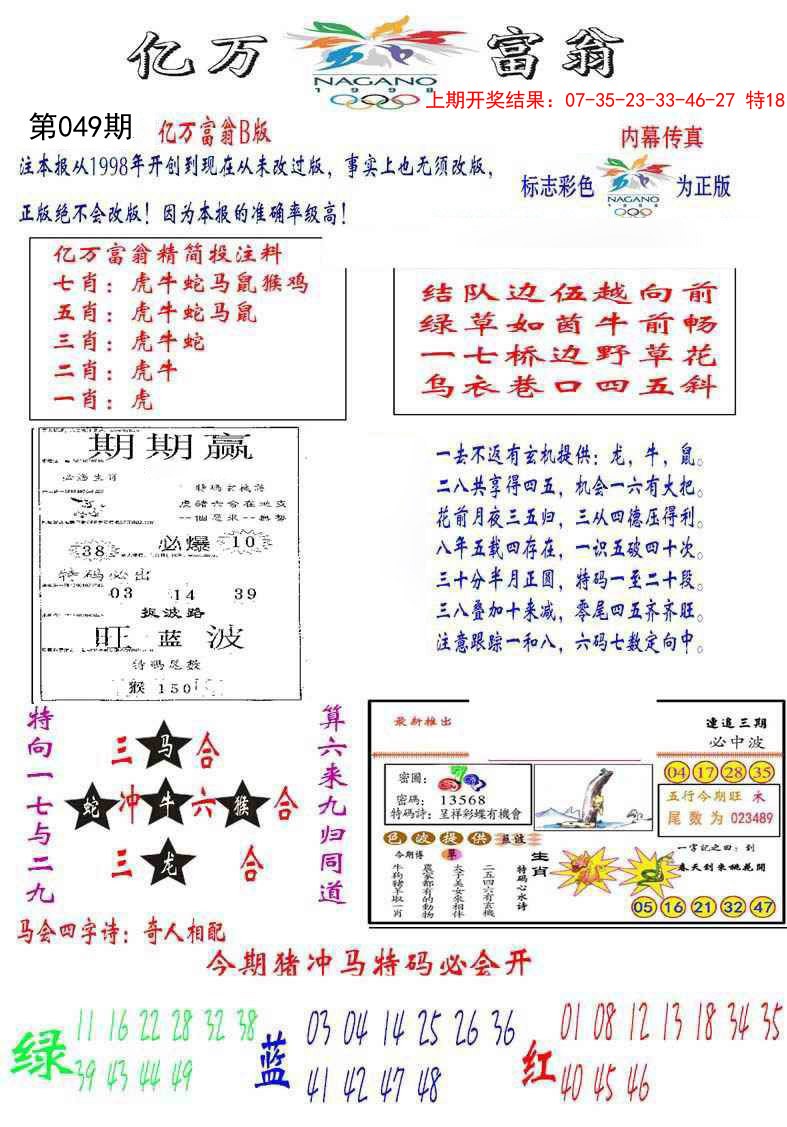 亿万 富翁
NAGANO
1998
上期开奖结果：07-35-23-33-46-27 特18
第049期 亿万富翁B版
内幕传真
注本报从1998年开创到现在从未改过版，事实上也无须改版，
正版绝不会改版！因为本报的准确率级高！
标志彩色 NAGANO 为正版
1998
亿万富翁精简投注料
七肖：虎牛蛇马鼠猴鸡
五肖：虎牛蛇马鼠
三肖：虎牛蛇
二肖：虎牛
一肖：虎
结队边伍越向前
绿草如茵牛前畅
一七桥边野草花
乌衣巷口四五斜
期期赢
必爆
38
10
特码必出
03 14 39
捉波路
旺蓝波
特碼尾数
猴 150
一去不返有玄机提供：龙，牛，鼠。
二八共享得四五，机会一六有大把。
花前月夜三五归，三从四德压得利。
八年五载四存在，一识五破四十次。
三十分半月正圆，特码一至二十段。
三八叠加十来减，零尾四五齐齐旺。
注意跟踪一和八，六码七数定向中。
特向一七与二九
三马合
蛇冲牛六猴合
三龙合
算六来九归同道
最新推出
連追三期
必中波
密圖：
密碼： 13568
特碼詩：呈祥彩蝶有機會
04 17 28 35
五行今期旺 木
尾数为 023489
色波提供
今期博 草
牛狗豬羊取一肖
農家都有的動物
太子美女來相伴
二五四六有玄機
特码心水诗
生肖
一字記之曰：到
春天到來桃花開
05 16 21 32 47
马会四字诗：奇人相配
今期猪冲马特码必会开
绿
11 16 22 28 32 38
39 43 44 49
蓝
03 04 14 25 26 36
41 42 47 48
红
01 08 12 13 18 34 35
40 45 46